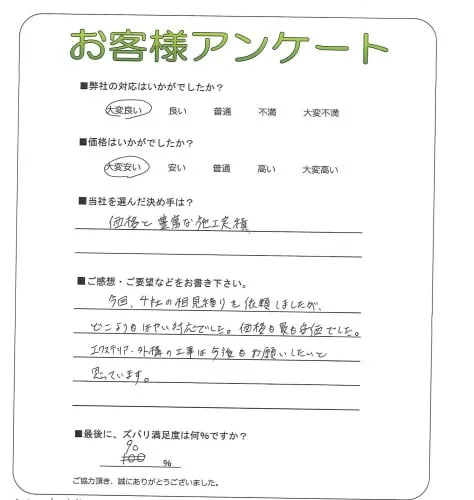 お客様アンケート
■弊社の対応はいかがでしたか？
大変良い 良い 普通 不満 大変不満
■価格はいかがでしたか？
大変安い 安い 普通 高い 大変高い
■当社を選んだ決め手は？
価格と豊富な施工実積
■ご感想・ご要望などをお書き下さい。
今回、4社の相見積りを依頼しましたが、
どこよりもはやい対応でした。価格も最も安価でした。
エクステリア・外構の工事は今後もお願いしたいと
思っています。
■最後に、ズバリ満足度は何％ですか？
90
100 %
ご協力頂き、誠にありがとうございました。